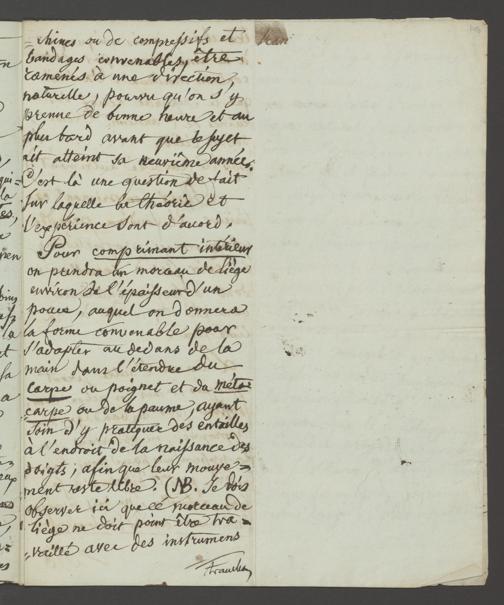 =chines ou de compressifs et
bandages convenables, être
ramenés à une direction
naturelle, pourvu qu'on s'y
prenne de bonne heure et au
plus tard avant que le sujet
ait atteint sa neuvième année.
C'est là une question de fait
sur laquelle la théorie et
l'expérience sont d'acord.
Pour comprimant intérieur
on prendra un morceau de liège
environ de l'épaisseur d'un
pouce, auquel on donnera
la forme convenable pour
s'adapter au dedans de la
main dans l'étendue du
carpe ou poignet et du méta=
carpe ou de la paume, ayant
soin d'y pratiquer des entailles
à l'endroit de la naissance des
doigts, afin que leur mouve=
ment reste libre. (NB. Je dois
observer ici que ce morceau de
liège ne doit point être tra=
=vaillé avec des instrumens